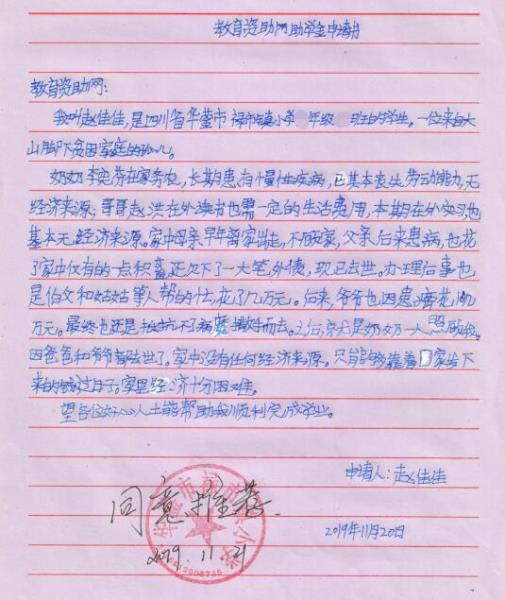 教育资助网助学金申请书
教育资助网:
我叫赵佳佳,是四川省华蓥市禄市镇小学 年级 班的学生。一位来自大
山脚下贫困家庭的孤儿。
奶奶李 芬在家务农,长期患有慢性疾病,已基本丧失劳动能力,无
经济来源;哥哥赵洪在外读书也需一定的生活费用,本期在外实习也
基本无经济来源。家中母亲早年离家出走,不顾家,父亲后来患病,也花
了家中仅有的一点积蓄,还欠下了一大笔外债,现已去世。办理后事也
是伯父和姑姑等人帮的忙,花了几万元。后来,爷爷也因患病花 几
万元。最终也还是抵抗不了病魔 而去。之后,家尤是奶奶一人照顾我。
因爸爸和爷爷都去世了。家中没有任何经济来源。只能够靠着 家给下
来的钱过日子。家里经济十分困难。
望各位好心人士能帮助我顺利完成学业。
申请人:赵佳佳
2019年11月20日
同意推荐
2019.11.21